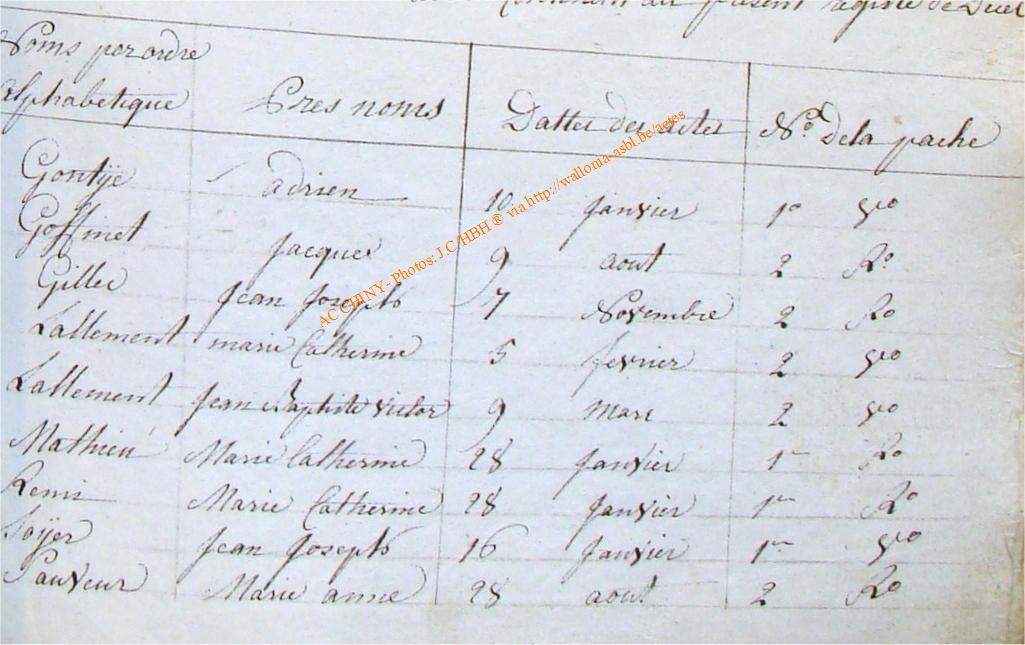 contenant au present registre de Deces
Noms par ordre
alphabetique Pres noms Dattes des actes Nos dela pache
Gontÿe adrien 10 janvier 1o vo
Goffinet jacque 9 aout 2 Ro
Gilles jean joseph 7 Novembre 2 Ro
Lallement marie Catherine 5 fevrier 2 vo
Lallement jean Baptiste victor 9 mars 2 vo
Mathieu Marie Catherine 28 janvier 1er Ro
Remi Marie Catherine 28 janvier 1er Ro
Soÿer jean joseph 16 janvier 1er vo
Sauveur Marie anne 28 aout 2 Ro
AC CHINY - Photos: J.C/HBH ® via http://wallonia-asbl.be/actes